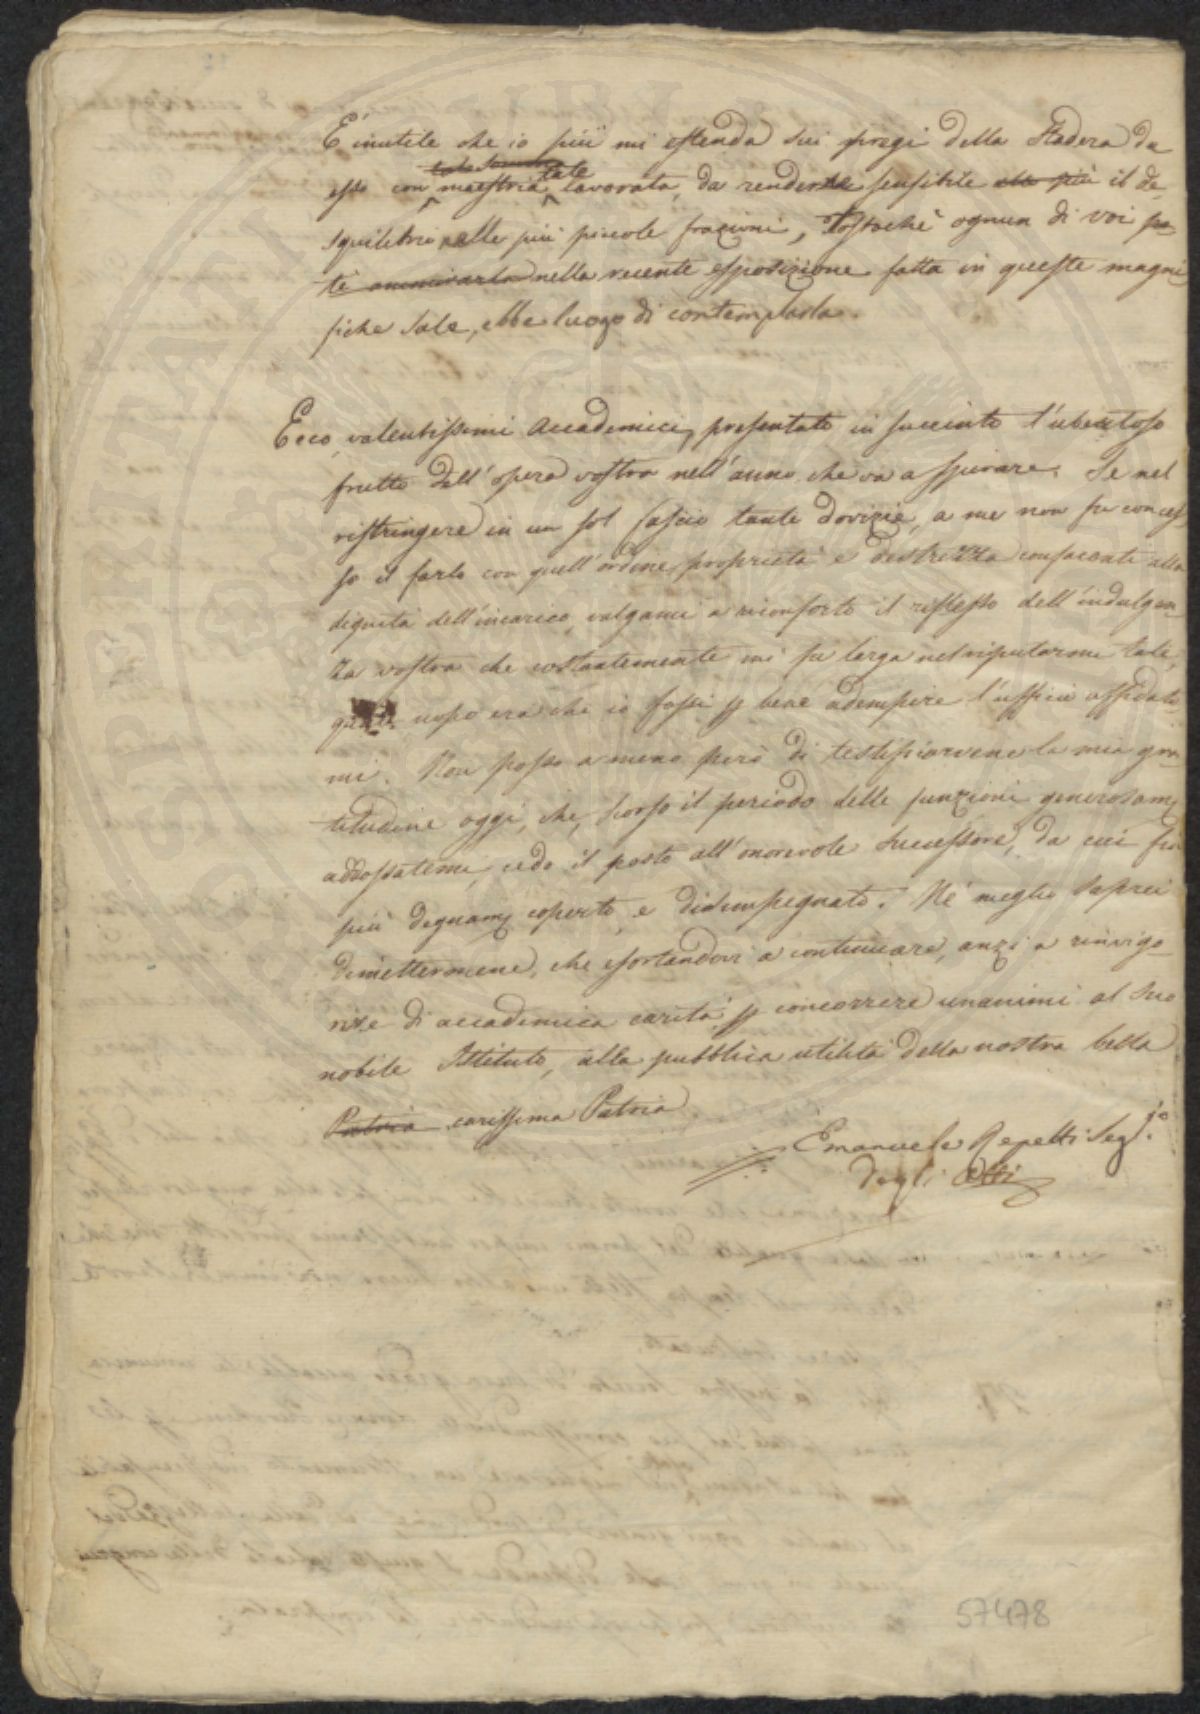 È inutile che io più mi estenda sui pregi della Stadera da
esso con maestria tale lavorata, da rendere sensibile alle più il de
squilibrio alle più piccole frazioni, Tostochè ognun di voi po-
tè ammirarla nella recente esposizione fatta in queste magni
fiche sale, ebbe luogo di contemplarla.
Ecco, valentissimi Accademici, presentato in succinto l'ubertoso
frutto dell'opera vostra nell'anno che va a spirare. Se nel
ristringere in un sol fascio tante dovizie, a me non fu conces
so il farlo con quell'ordine, proprietà e destrezza confacenti alla
dignità dell'incarico, valgami a riconforto il riflesso dell'indulgen-
za vostra che costantemente mi fu larga nel riputarmi tale,
quale uopo era che io fossi p bene adempire l'ufficio affidato
mi. Non posso a meno però di testificarvene la mia gra-
titudine oggi, che, scorso il periodo delle funzioni generosam
addossatemi, cedo il posto all'onorevole Successore, da cui fia
più degnam coperto, e disimpegnato. Nè meglio saprei
dimettermene, che esortandovi a continuare, anzi a rinvigo-
rire di accademica carità p concorrere unanimi al suo
nobile Istituto, alla pubblica utilità della nostra bella
Patria carissima Patria
Emanuele Repetti Seg.io
degli Atti
57478